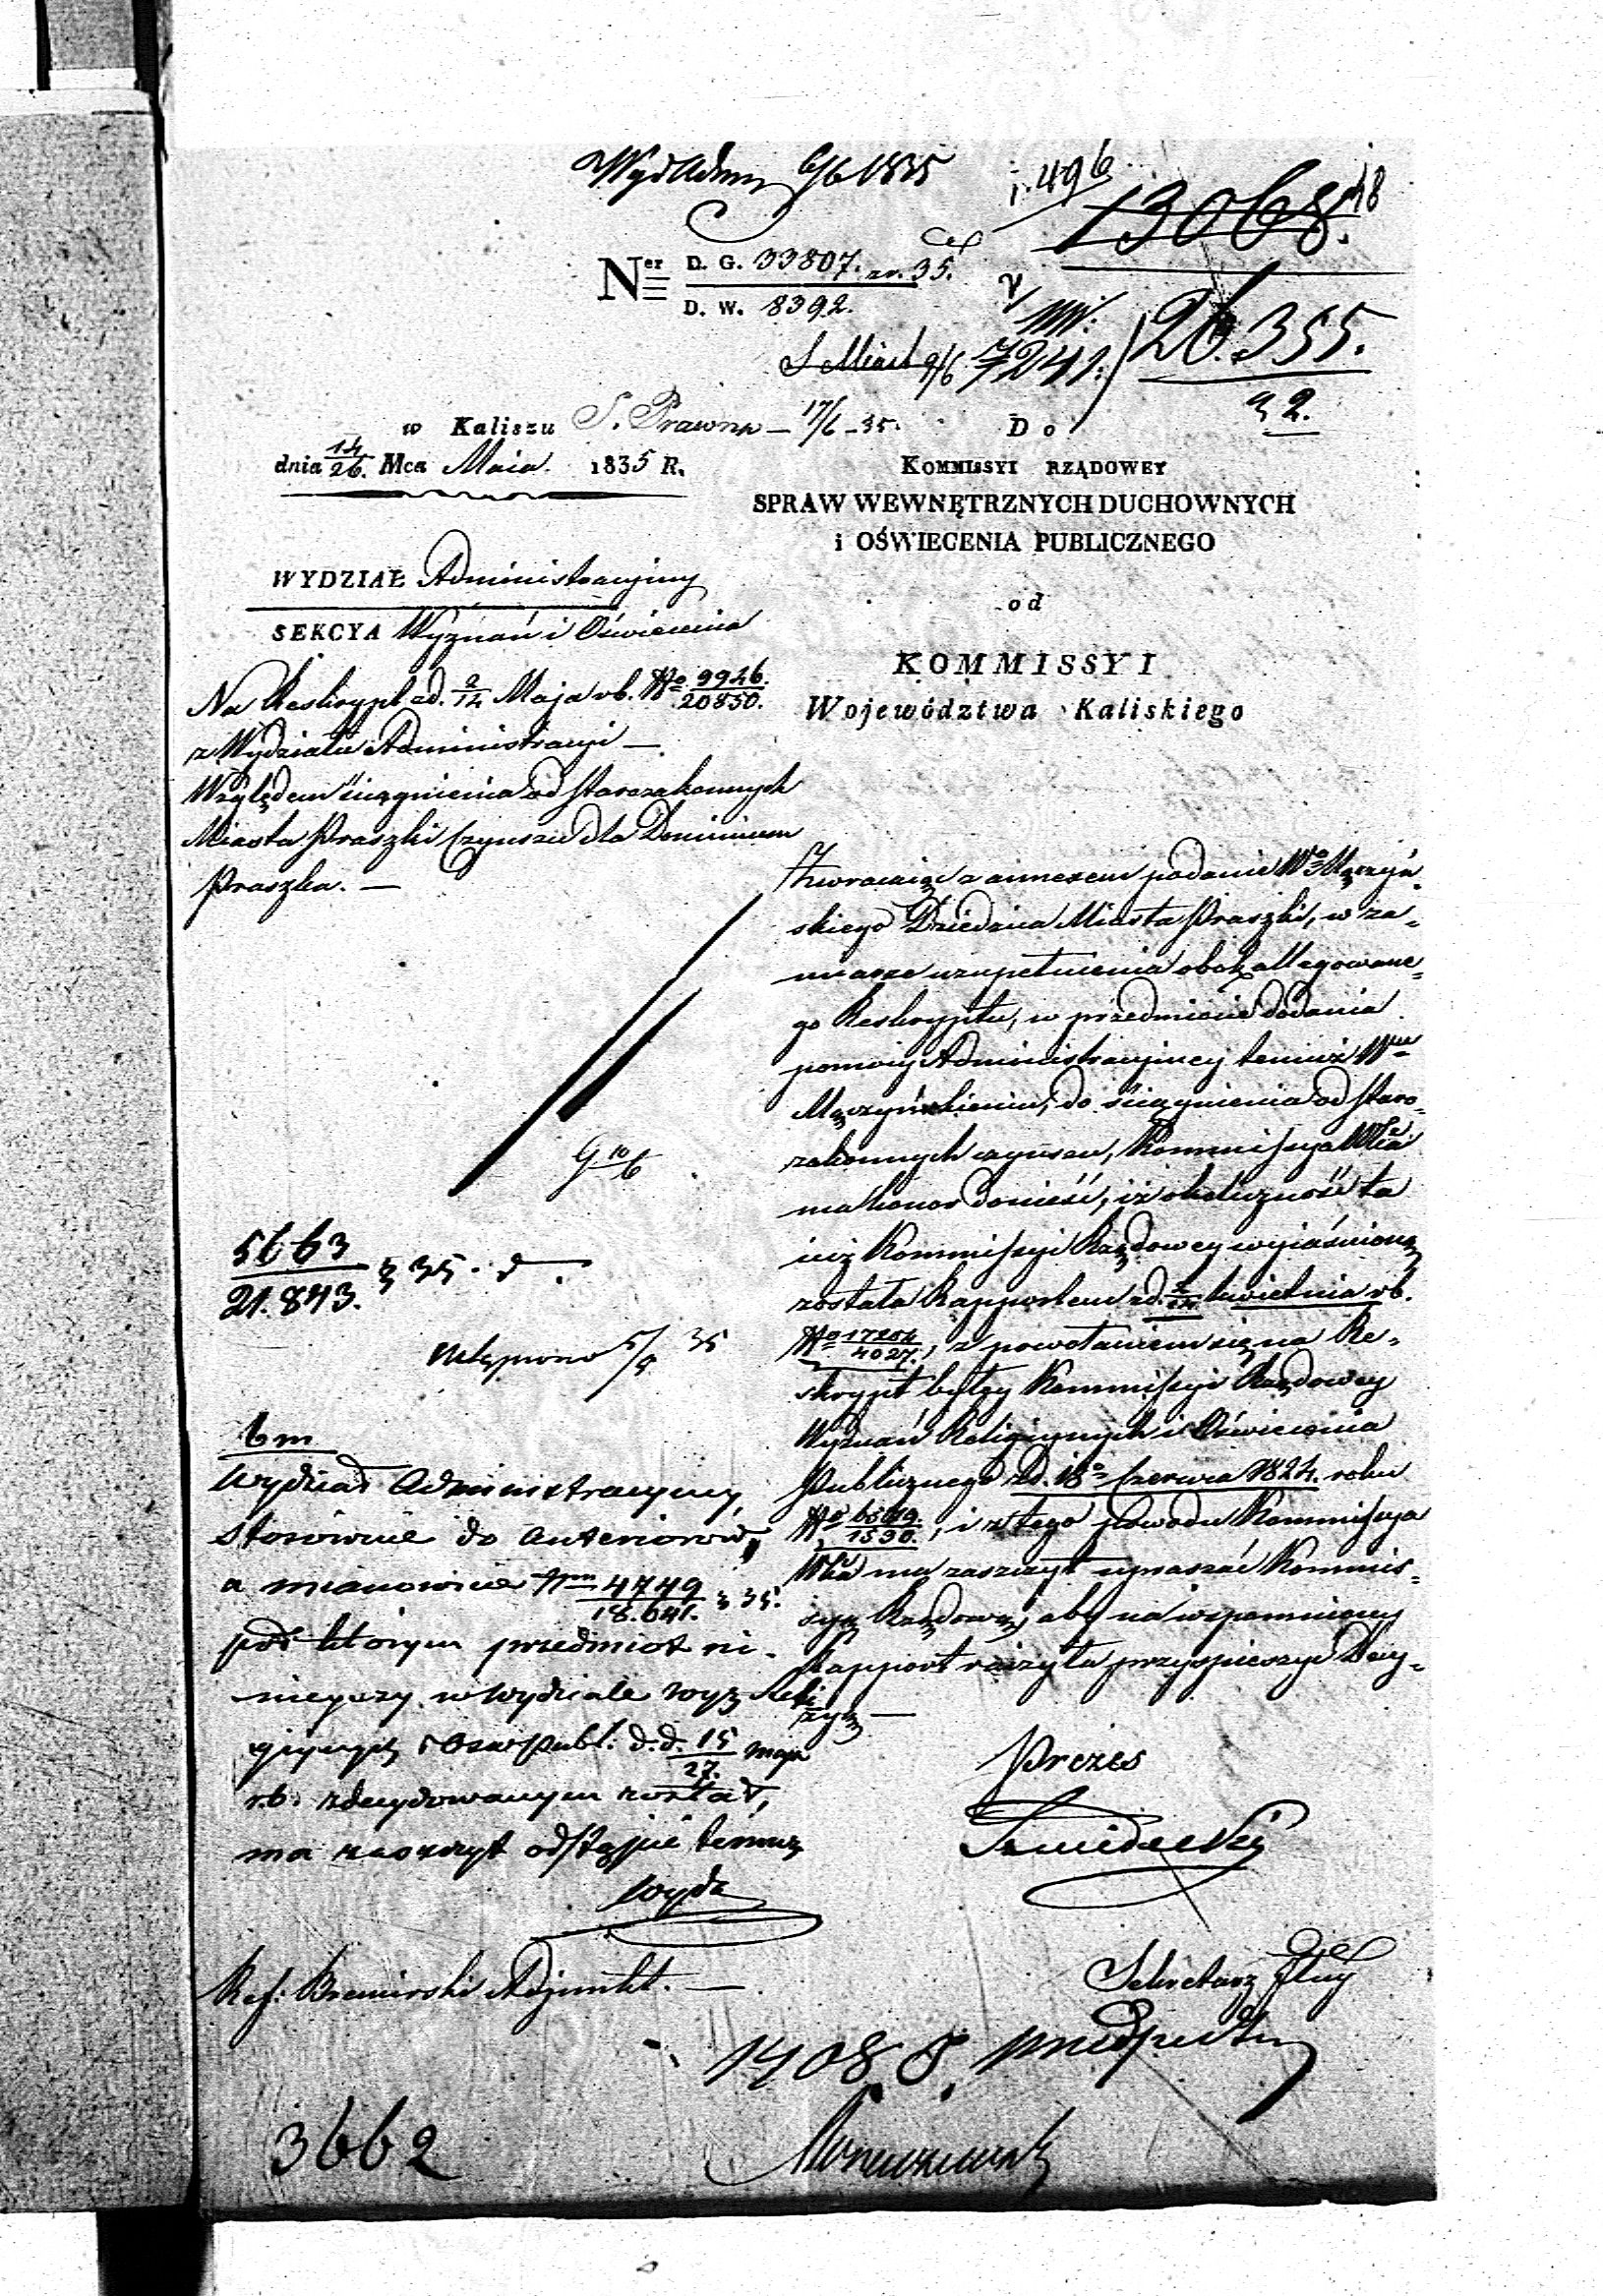 Wydz Adm 6/6 1835
j. 496
13068. 18
Ner D. G. 33807. ar. 35.
D. W. 8392.
S Miast 9/6 7241.
26.355.
2.
w Kaliszu S. Prawna — 17/6 - 35.
dnia 14/26. Mca Maia. 1835 R.
Do
KOMMISSYI RZĄDOWEY
SPRAW WEWNĘTRZNYCH DUCHOWNYCH
i OŚWIECENIA PUBLICZNEGO
od
KOMMISSYI
Województwa Kaliskiego
WYDZIAŁ Administracyiny
SEKCYA Wyznań i Oświecenia
Na Reskrypt z d. 2/14 Maja r b. No 9926./20850.
z Wydziału Administracyi —
Względem ściągnienia od starozakonnych
Miasta Praszki Czynszu dla Dominium
Praszka. —
Zwracaiąc z annexem podanie Wo Męczyń-
skiego Dziedzica Miasta Praszki, w za-
miarze uzupełnienia obok allegowane-
go Reskryptu, w przedmiocie dodania
pomocy Administracyiney temuż Wmu
Męczyńskiemu, do ściągnienia od staro-
zakonnych czynszu, Kommissya Wka
ma honor donieść, iż okoliczność ta
iuż Kommissyi Rządowey wyiaśnioną
została Rapportem z d. 2/14 kwietnia r b.
No 17204/4027., z powołaniem się na Re-
skrypt byłey Kommissyi Rządowey
Wyznań Religiynych i Oświecenia
Publicznego z d. 18o Czerwca 1824. roku
No /1530., i z tego powodu Kommissya
Wka ma zaszczyt upraszać Kommis-
syę Rządową, aby na wspomniony
Rapport raczyła przyspieszyć Decy-
zyę —
Prezes
Sekretarz Jlny
G 10/6
5663/21.843. z 35.
5/9 35
6 m
Wydział Administracyiny,
stosownie do anteriorów,
a mianowicie Nru 4749/18.641. z 35.
pod którym przedmiot ni-
nieyszy w Wydziale Wyz Reli
giynych i Oświe Publ. d. d. 15/27. maja
r. b. zdecydowanym został,
ma zaszczyt odstąpić temuż
Wydz
Ref: Adjunkt. —
14088.
3662